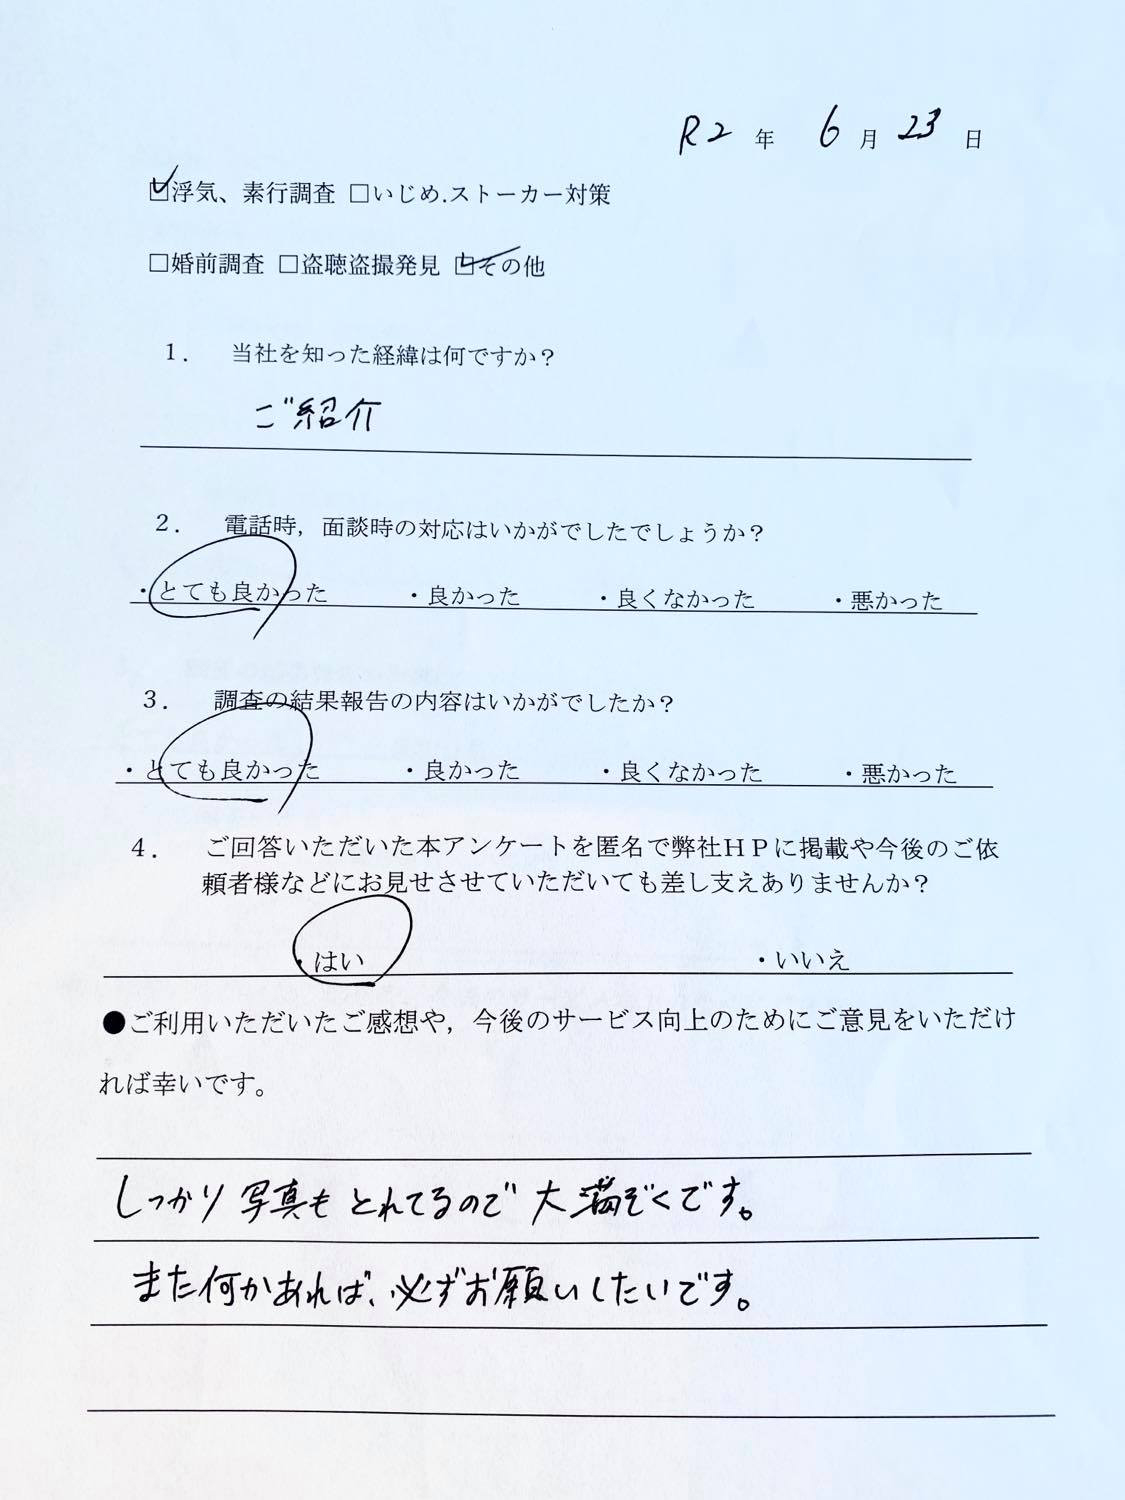 R2 年 6 月 23 日
☑浮気、素行調査 □いじめ.ストーカー対策
□婚前調査 □盗聴盗撮発見 ☑その他
１． 当社を知った経緯は何ですか？
ご紹介
２． 電話時，面談時の対応はいかがでしたでしょうか？
・とても良かった ・良かった ・良くなかった ・悪かった
３． 調査の結果報告の内容はいかがでしたか？
・とても良かった ・良かった ・良くなかった ・悪かった
４． ご回答いただいた本アンケートを匿名で弊社ＨＰに掲載や今後のご依
頼者様などにお見せさせていただいても差し支えありませんか？
・はい ・いいえ
●ご利用いただいたご感想や，今後のサービス向上のためにご意見をいただけ
れば幸いです。
しっかり写真もとれてるので大満ぞくです。
また何かあれば、必ずお願いしたいです。